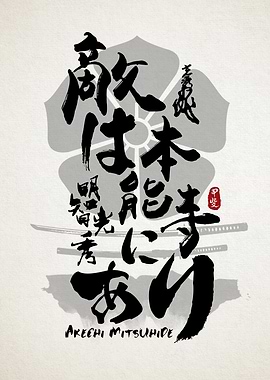 敵は
本能寺に
あり
明智光秀
AKECHI MITSUHIDE